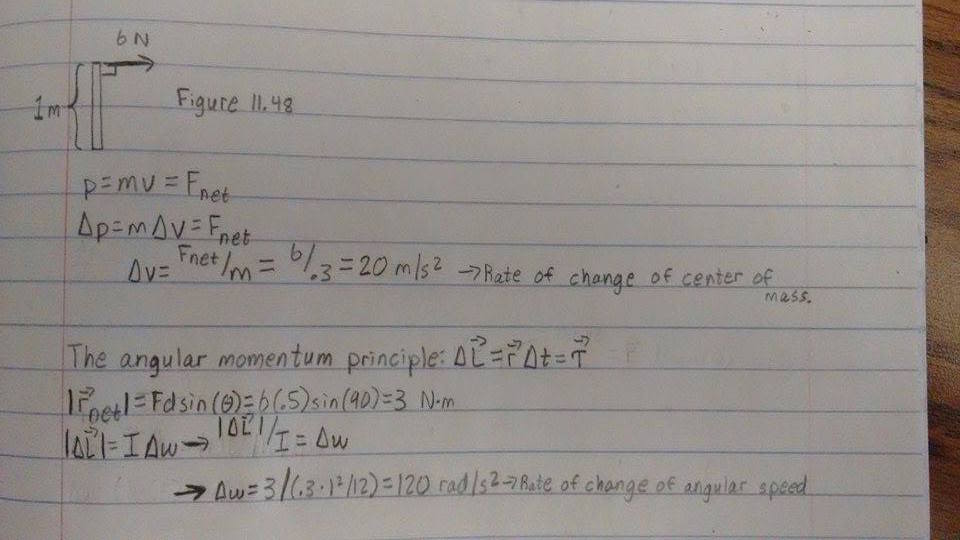 6 N
1m
Figure 11.48
p=mv=F_net
Δp=mΔv=F_net
Δv=Fnet/m=6/.3=20 m/s² →Rate of change of center of mass.
The angular momentum principle: ΔL⃗=τ⃗Δt=τ⃗
|τ⃗_net|=Fdsin(θ)=6(.5)sin(90)=3 N·m
|ΔL⃗|=IΔw→|ΔL⃗|/I=Δw
→Δw=3/(.3·1²/12)=120 rad/s²→Rate of change of angular speed